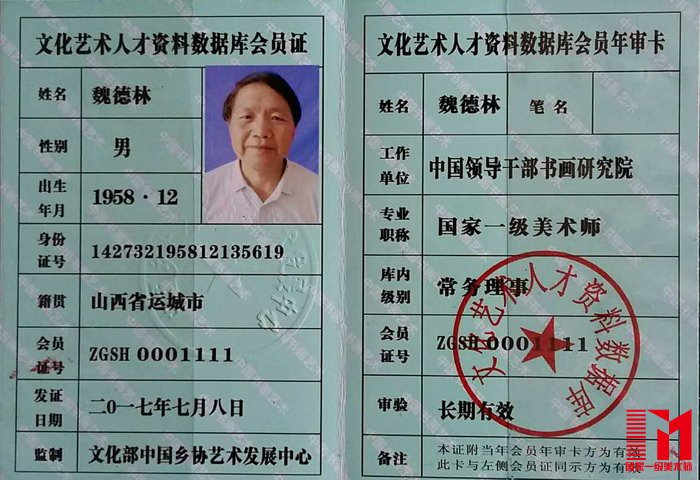 文化艺术人才资料数据库会员证
姓名 魏德林
性别 男
出生年月 1958·12
身份证号 142732195812135619
籍贯 山西省运城市
会员证号 ZGSH 0001111
发证日期 二○一七年七月八日
监制 文化部中国乡协艺术发展中心
文化艺术人才资料数据库会员年审卡
姓名 魏德林 笔名
工作单位 中国领导干部书画研究院
专业职称 国家一级美术师
库内级别 常务理事
会员证号 ZGSH 0001111
审验 长期有效
备注 本证附当年会员年审卡方为有效
此卡与左侧会员证同示方为有效
文化艺术人才资料数据库
国家一级美术师